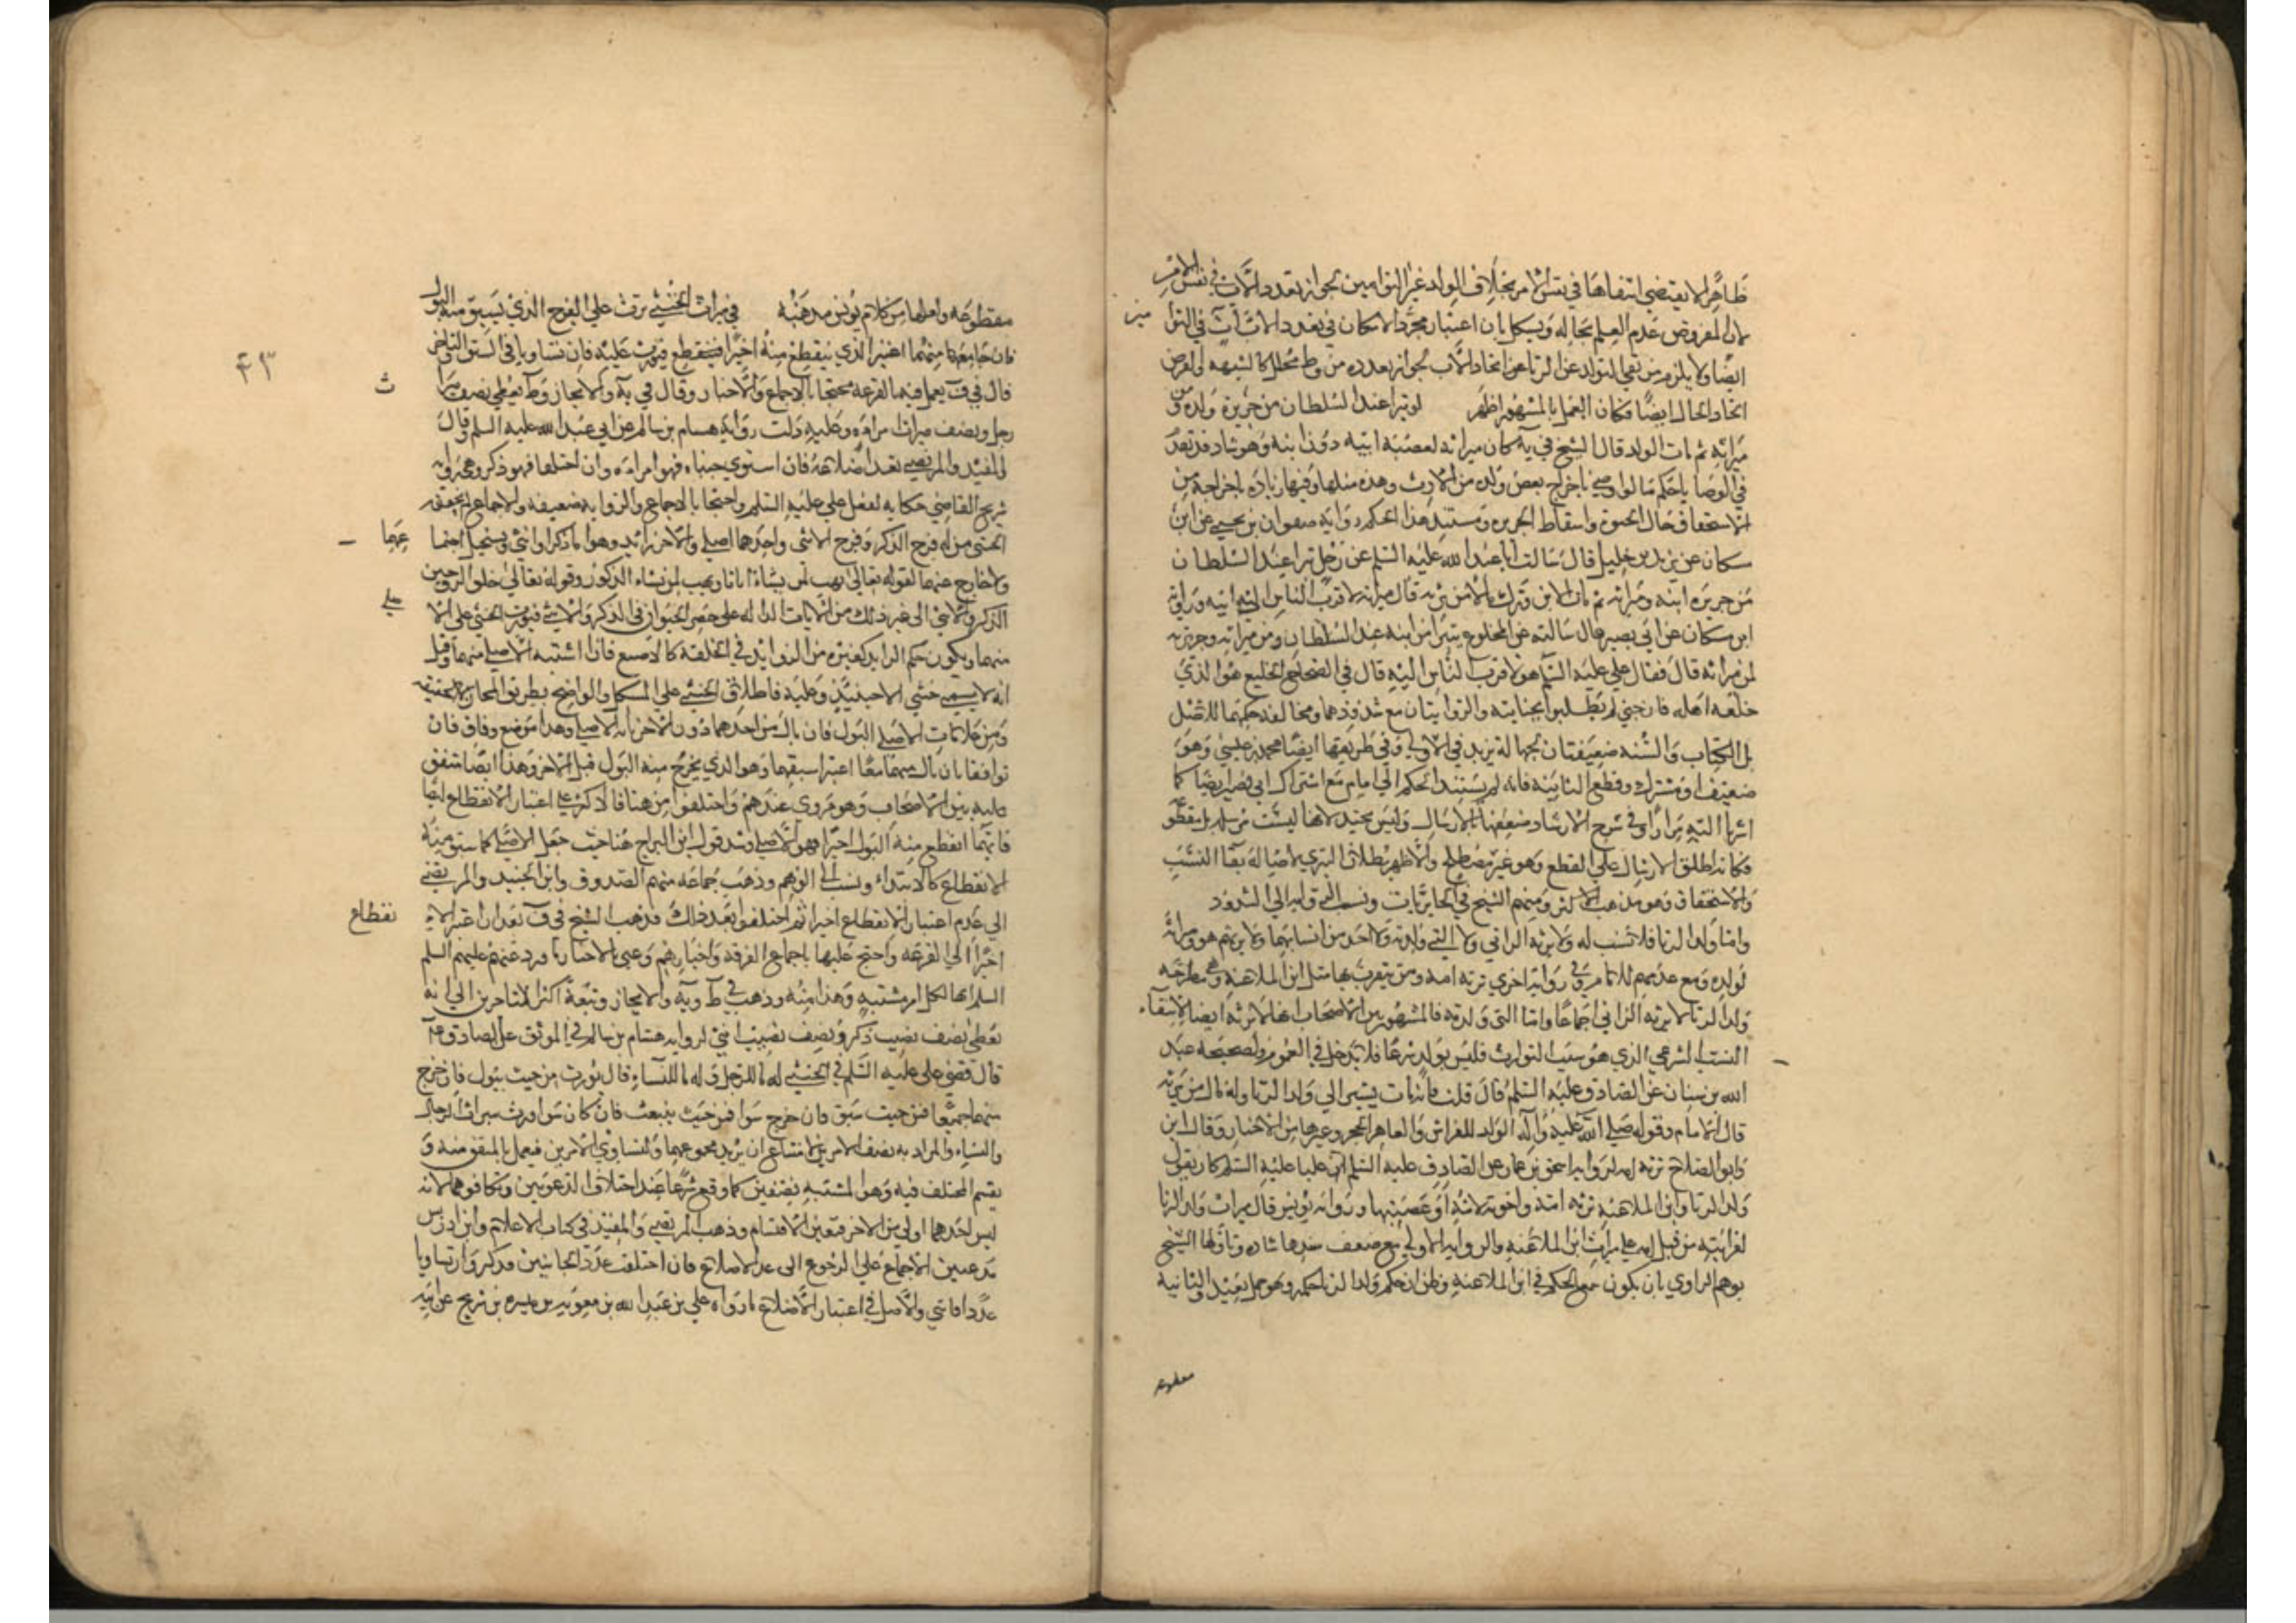 ظاهرا لا يقتضي انتفاءها في نفس الامر بخلاف الولد غير التوامين لجواز تعدد الاب في نفس الامر
لان المفروض عدم العلم بحاله ويشكل بان اعتبار مجرد الامكان في تعدد الاب آت في التوا
مين
ايضا ولا يلزم من نفي التولد عن الزنا هنا اتحاد الاب لجواز تعدده من وطء محلل كالشبهة اذ الفرض
اتحاد الحال ايضا فكان العمل بالمشهور اظهر لو تبرا عند السلطان من جريرة ولده ومن
ميراثه ثم مات الولد قال الشيخ في يه كان ميراثه لعصبة ابيه دون ابنه وهو شاذ قد تقدم
في الوصايا حكم ما لو اوصى باخراج بعض ولده من الارث وهذه مثلها وفيها زيادة اخراجه من
الاستحقاق حال الحيوة واسقاط الجريرة ومستند هذا الحكم رواية صفوان بن يحيى عن ابن
مسكان عن يزيد بن خليل قال سالت ابا عبد الله عليه السلم عن رجل تبرا عند السلطان
من جريرة ابنه وميراثه ثم مات الابن وترك مالا من يرثه قال ميراثه لاقرب الناس الى ابيه ورواية
ابن مسكان عن ابي بصير قال سالته عن المخلوع يتبرا من ابنه عند السلطان ومن ميراثه وجريرته
لمن ميراثه قال فقال علي عليه السلم هو لاقرب الناس اليه قال في الصحاح الخليع هو الذي
خلعه اهله فان جنى لم يطلبوا بجنايته والروايتان مع شذوذهما ومخالفة حكمهما للاصل
بل الكتاب والسنة ضعيفتان بجهالة يزيد في الاولى وفي طريقها ايضا محمد بن عيسى وهو
ضعيف او مشترك وقطع الثانية فانه لم يستند الحكم الى امام مع اشتراك ابي بصير ايضا كما
اشرنا اليه مرارا وفي شرح الارشاد ضعفها بالارسال وليس بجيد لانها ليست مرسلة بل مقطوعة
فكانه اطلق الارسال على القطع وهو غير مصطلح والاظهر بطلان التبري لاصالة بقاء النسب
والاستحقاق وهو مذهب الاكثر ومنهم الشيخ في الحايريات ونسب القول به الى الشذوذ
واما ولد الزنا فلا نسب له ولا يرثه الزاني ولا التي ولدته ولا احد من انسابهما ولا يرثهم هو وميراثه
لولده ومع عدمهم للامام وفي رواية اخرى ترثه امه ومن يتقرب بها مثل ابن الملاعنة وهي مطرحة
ولد الزنا لا يرثه الزاني اجماعا واما التي ولدته فالمشهور بين الاصحاب انها لا ترثه ايضا لانتفاء
النسب الشرعي الذي هو سبب التوارث فليس بولد شرعا فلا يدخل في العموم ولصحيحة عبد
الله بن سنان عن الصادق عليه السلم قال قلت فانه مات يعني الى ولد الزنا وله مال من يرثه
قال الامام وقوله صلى الله عليه وآله الولد للفراش وللعاهر الحجر وغيرها من الاخبار وقال ابن
وابو الصلاح ترثه امه لرواية اسحق بن عمار عن الصادق عليه السلم ان عليا عليه السلم كان يقول
ولد الزنا وابن الملاعنة ترثه امه واخوته لامه او عصبتها ورواية يونس قال ميراث ولد الزنا
لقرابته من قبل امه على ميراث ابن الملاعنة والرواية الاولى مع ضعف سندها شاذة وتاولها الشيخ
بوهم الراوي بان يكون سمع الحكم في ابن الملاعنة وظن ان حكم ولد الزنا حكمه وهو حمل بعيد والثانية
مقطوعة
٤٣
مقطوعة ولعلها من كلام يونس ومذهبه في ميراث الخنثى ترث على الفرج الذي يسبق منه البول
فان جاء منهما اعتبر الذي ينقطع منه اخيرا فيورث عليه فان تساويا في السبق والتاخر
قال في ف يعمل فيه بالقرعة محتجا بالاجماع والاخبار وقال في يه والايجاز وط يعطى نصف ميرا
ث
رجل ونصف ميراث امراة وعليه دلت رواية هشام بن سالم عن ابي عبد الله عليه السلم وقال
المفيد والمرتضى تعد اضلاعه فان استوى جنباه فهو امراة وان اختلفا فهو ذكر وهي رواية
شريح القاضي حكاية لفعل علي عليه السلم واحتجا بالاجماع والرواية ضعيفة والاجماع لم يتحقق
الخنثى من له فرج الذكر وفرج الانثى واحدهما اصلي والاخر زايد وهو اما ذكر او انثى ويستحيل اجتما
عهما
ولا خارج عنهما لقوله تعالى يهب لمن يشاء اناثا ويهب لمن يشاء الذكور وقوله تعالى خلق الزوجين
الذكر والانثى الى غير ذلك من الايات الدالة على حصر الحيوان في الذكر والانثى فيورث الخنثى على الا
صلي
منهما ويكون حكم الزايد كغيره من الزوايد في الخلقة كالاصبع فاذا اشتبه الاصلي منهما وقيل
انه لا يسمى خنثى الا حينئذ وعليه فاطلاق الخنثى على المشكل والواضح بطريق المجاز لا الحقيقة
ومن علامات الاصلي البول فان بال من احدهما دون الاخر بانه الاصلي وهذا موضع وفاق فان
توافقا بان بال منهما معا اعتبر اسبقهما وهو الذي يخرج منه البول قبل الاخر وهذا ايضا متفق
عليه بين الاصحاب وهو مروي عندهم واختلفوا من هنا فالاكثر على اعتبار الانقطاع ايضا
فايهما انقطع منه البول اخيرا فهو الاصلي وشذ قول ابن البراج هنا حيث جعل الاصلي ما سبق منه
الانقطاع كالابتداء ونسب الى الوهم وذهب جماعة منهم الصدوق وابن الجنيد والمرتضى
الى عدم اعتبار الانقطاع اخيرا ثم اختلفوا بعد ذلك فذهب الشيخ في ف بعد ان اعتبر الا
نقطاع
اخيرا الى القرعة واحتج عليها باجماع الفرقة واخبارهم وعنى بالاخبار ما ورد عنهم عليهم السلم
السلم انها لكل امر مشتبه وهذا منه وذهب في ط ويه والايجاز وتبعه اكثر المتاخرين الى انه
يعطى نصف نصيب ذكر ونصف نصيب انثى لرواية هشام بن سالم في الموثق عن الصادق ع
قال قضى علي عليه السلم في الخنثى له ما للرجل وله ما للنساء قال يورث من حيث يبول فان خرج
منهما جميعا فمن حيث سبق فان خرج سوا فمن حيث ينبعث فان كان سوا ورث ميراث الرجال
والنساء والمراد به نصف الامرين لامتناع ان يريد مجموعهما ولتساوي الامرين فيعمل بالمتفق منه و
يقسم المختلف فيه وهو المشتبه نصفين كما وقع شرعا عند اختلاف الدعويين وتكافوهما لانه
ليس احدهما اولى من الاخر فتعين الاقتسام وذهب المرتضى والمفيد في كتاب الاعلام وابن ادريس
مدعين الاجماع على الرجوع الى عد الاضلاع فان اختلف عدد الجانبين فذكر وان تساويا
عددا فانثى والاصل في اعتبار الاضلاع ما رواه علي بن عبد الله بن معوية بن ميسرة بن شريح عن ابيه